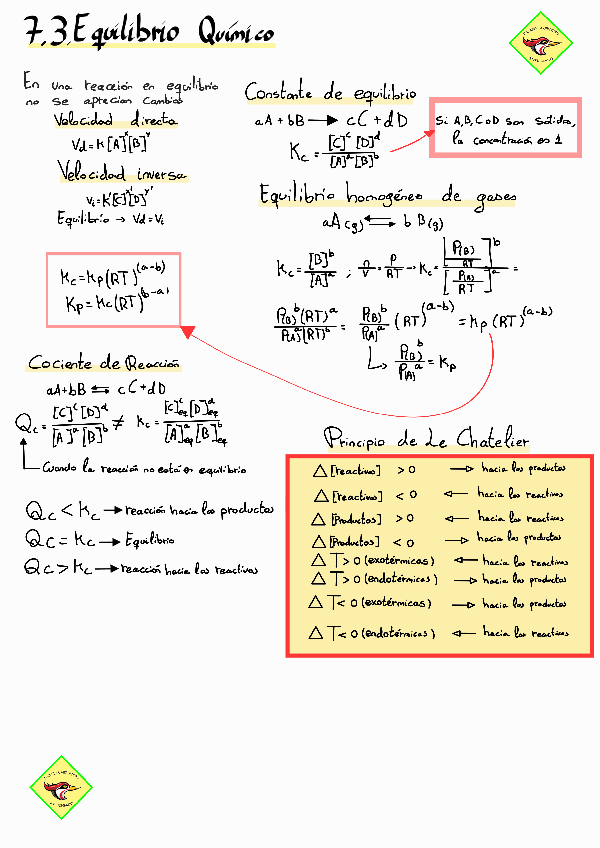 7.3. Equilibrio Químico
En una reacción en equilibrio
no se aprecian cambios
Velocidad directa
Vd = K[A]^x[B]^y
Velocidad inversa
Vi = K'[C]^x'[D]^y'
Equilibrio → Vd = Vi
Kc = Kp(RT)^(a-b)
Kp = Kc(RT)^(b-a)
Constante de equilibrio
aA + bB → cC + dD
Kc = [C]^c [D]^d / [A]^a [B]^b
Si A, B, C o D son sólidos,
la concentración es 1
Equilibrio homogéneo de gases
aA(g) ⇄ bB(g)
Kc = [B]^b / [A]^a ; n/V = P/RT → Kc = [P(B)/RT]^b / [P(A)/RT]^a =
P(B)^b (RT)^a / P(A)^a (RT)^b = P(B)^b / P(A)^a (RT)^(a-b) = Kp(RT)^(a-b)
P(B)^b / P(A)^a = Kp
Cociente de Reacción
aA + bB ⇆ cC + dD
Qc = [C]^c [D]^d / [A]^a [B]^b ≠ Kc = [C]^c eq [D]^d eq / [A]^a eq [B]^b eq
Cuando la reacción no está en equilibrio
Qc < Kc → reacción hacia los productos
Qc = Kc → Equilibrio
Qc > Kc → reacción hacia los reactivos
Principio de Le Chatelier
△ [reactivos] > 0 → hacia los productos
△ [reactivos] < 0 ← hacia los reactivos
△ [Productos] > 0 ← hacia los reactivos
△ [Productos] < 0 → hacia los productos
△ T > 0 (exotérmicas) ← hacia los reactivos
△ T > 0 (endotérmicas) → hacia los productos
△ T < 0 (exotérmicas) → hacia los productos
△ T < 0 (endotérmicas) ← hacia los reactivos